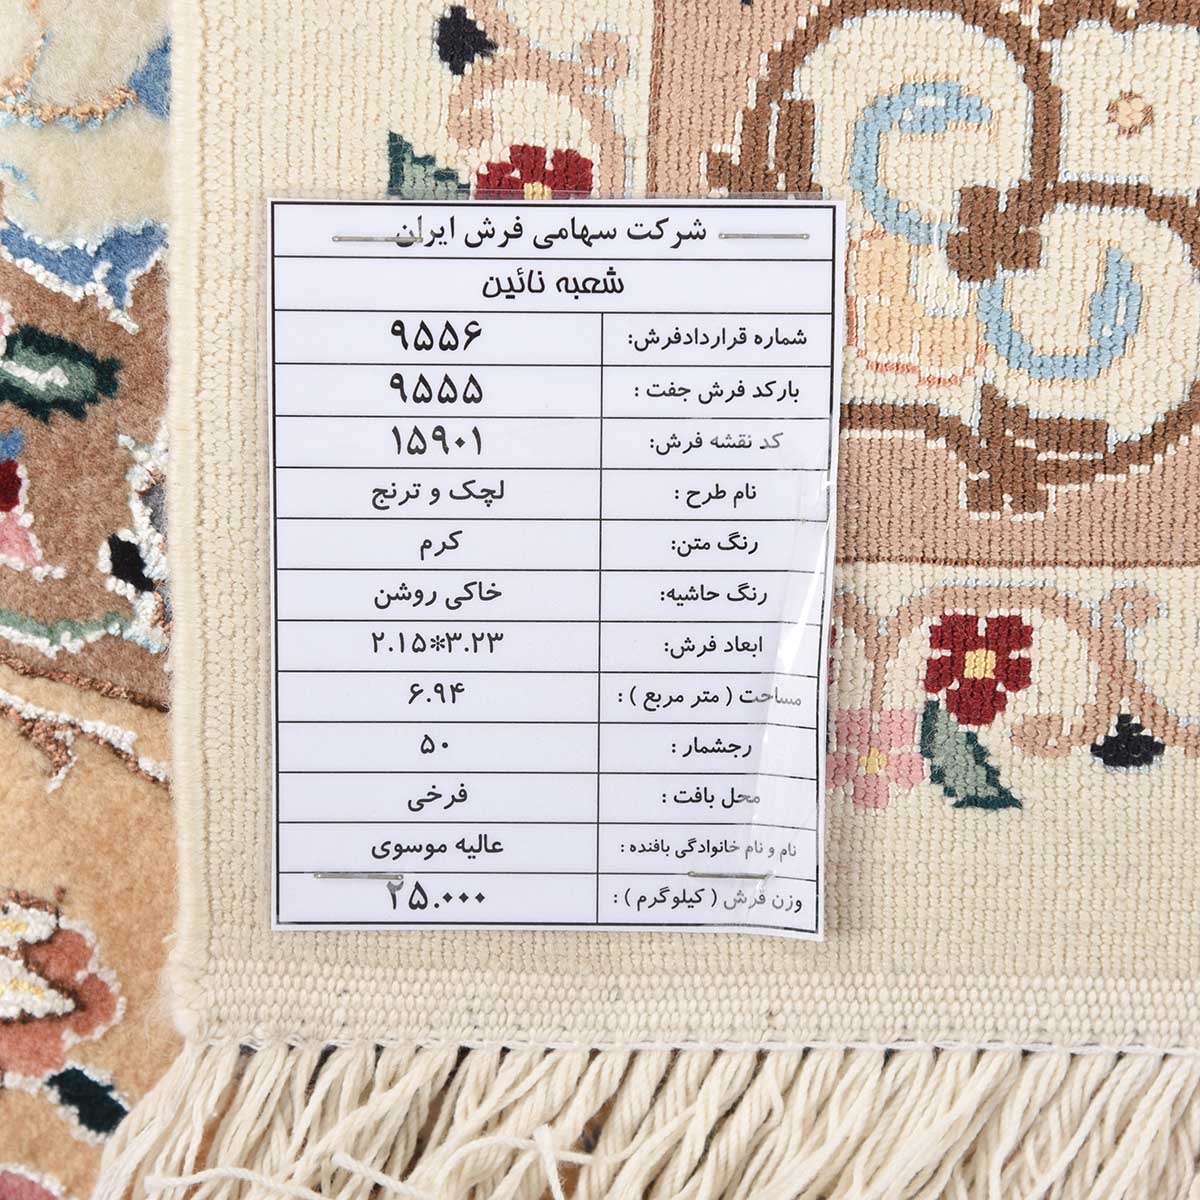 شرکت سهامی فرش ایران
شعبه نائین
شماره قراردادفرش: ۹۵۵۶
بارکد فرش جفت : ۹۵۵۵
کد نقشه فرش: ۱۵۹۰۱
نام طرح : لچک و ترنج
رنگ متن: کرم
رنگ حاشیه: خاکی روشن
ابعاد فرش: ۲.۱۵*۳.۲۳
مساحت ( متر مربع ) : ۶.۹۴
رجشمار : ۵۰
محل بافت : فرخی
نام و نام خانوادگی بافنده : عالیه موسوی
وزن فرش ( کیلوگرم ) : ۲۵.۰۰۰